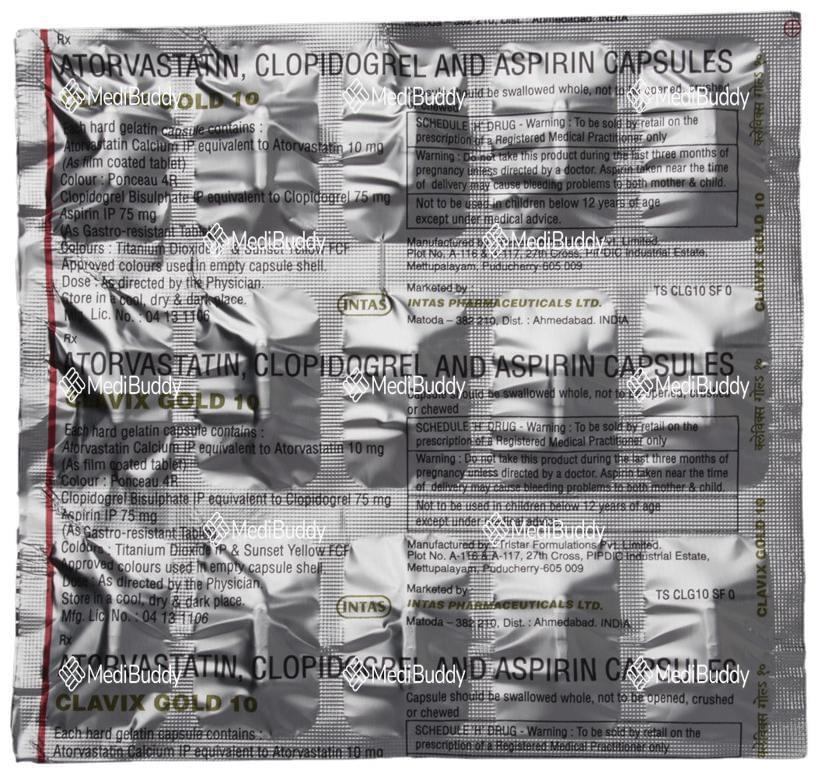 Matoda – 382 210, Dist. : Ahmedabad. INDIA
Rx
ATORVASTATIN, CLOPIDOGREL AND ASPIRIN CAPSULES
GOLD 10
MediBuddy
MediBuddy
MediBuddy
should be swallowed whole, not to
Each hard gelatin capsule contains :
Atorvastatin Calcium IP equivalent to Atorvastatin 10 mg
(As film coated tablet)
Colour : Ponceau 4R
Clopidogrel Bisulphate IP equivalent to Clopidogrel 75 mg
Aspirin IP 75 mg
(As Gastro-resistant
Colours : Titanium Dioxide & Sunset Yellow FCF
Approved colours used in empty capsule shell.
Dose : As directed by the Physician.
Store in a cool, dry & dark place.
Mfg. Lic. No. : 04 13 1106
SCHEDULE 'H' DRUG - Warning : To be sold by retail on the
prescription of a Registered Medical Practitioner only
Warning : Do not take this product during the last three months of
pregnancy unless directed by a doctor. Aspirin taken near the time
of delivery may cause bleeding problems to both mother & child.
Not to be used in children below 12 years of age
except under medical advice.
MediBuddy
MediBuddy
Manufactured Pvt. Limited.
Plot No. A-116 & A-117, 27th Cross, PIPDIC Industrial Estate,
Mettupalayam, Puducherry-605 009
Marketed by :
INTAS
INTAS PHARMACEUTICALS LTD.
TS CLG10 SF 0
Matoda – 382 210, Dist. : Ahmedabad. INDIA
Rx
ATORVASTATIN, CLOPIDOGREL AND ASPIRIN CAPSULES
MediBuddy
MediBuddy
MediBuddy
CLAVIX GOLD 10
Capsule should be swallowed whole, not to opened, crushed
or chewed
Each hard gelatin capsule contains :
Atorvastatin Calcium IP equivalent to Atorvastatin 10 mg
(As film coated tablet)
Colour : Ponceau 4R
Clopidogrel Bisulphate IP equivalent to Clopidogrel 75 mg
Aspirin IP 75 mg
(As Gastro-resistant
Colours : Titanium Dioxide IP & Sunset Yellow FCF
Approved colours used in empty capsule shell
Dose : As directed by the Physician.
Store in a cool, dry & dark place.
Mfg. Lic. No. : 04 13 1106
SCHEDULE 'H' DRUG - Warning : To be sold by retail on the
prescription of a Registered Medical Practitioner only
Warning : Do not take this product during the last three months of
pregnancy unless directed by a doctor. Aspirin taken near the time
of delivery may cause bleeding problems to both mother & child.
Not to be used in children below 12 years of age
except under
MediBuddy
MediBuddy
Manufactured by : Tristar Formulations Pvt. Limited.
Plot No. A-116 & A-117, 27th Cross, PIPDIC Industrial Estate,
Mettupalayam, Puducherry-605 009
Marketed by
INTAS
INTAS PHARMACEUTICALS LTD.
TS CLG10 SF 0
Matoda – 382 210, Dist. : Ahmedabad. INDIA
Rx
ATORVASTATIN, CLOPIDOGREL AND ASPIRIN CAPSULES
MediBuddy
MediBuddy
MediBuddy
CLAVIX GOLD 10
Capsule should be swallowed whole, not to be opened, crushed
or chewed
Each hard gelatin capsule contains :
Atorvastatin Calcium IP equivalent to Atorvastatin 10 mg
SCHEDULE 'H' DRUG - Warning : To be sold by retail on the
prescription of a Registered Medical Practitioner only
क्लेविक्स गोल्ड १०
CLAVIX GOLD 10
क्लेविक्स गोल्ड १०
CLAVIX GOLD 10
क्लेविक्स गोल्ड १०